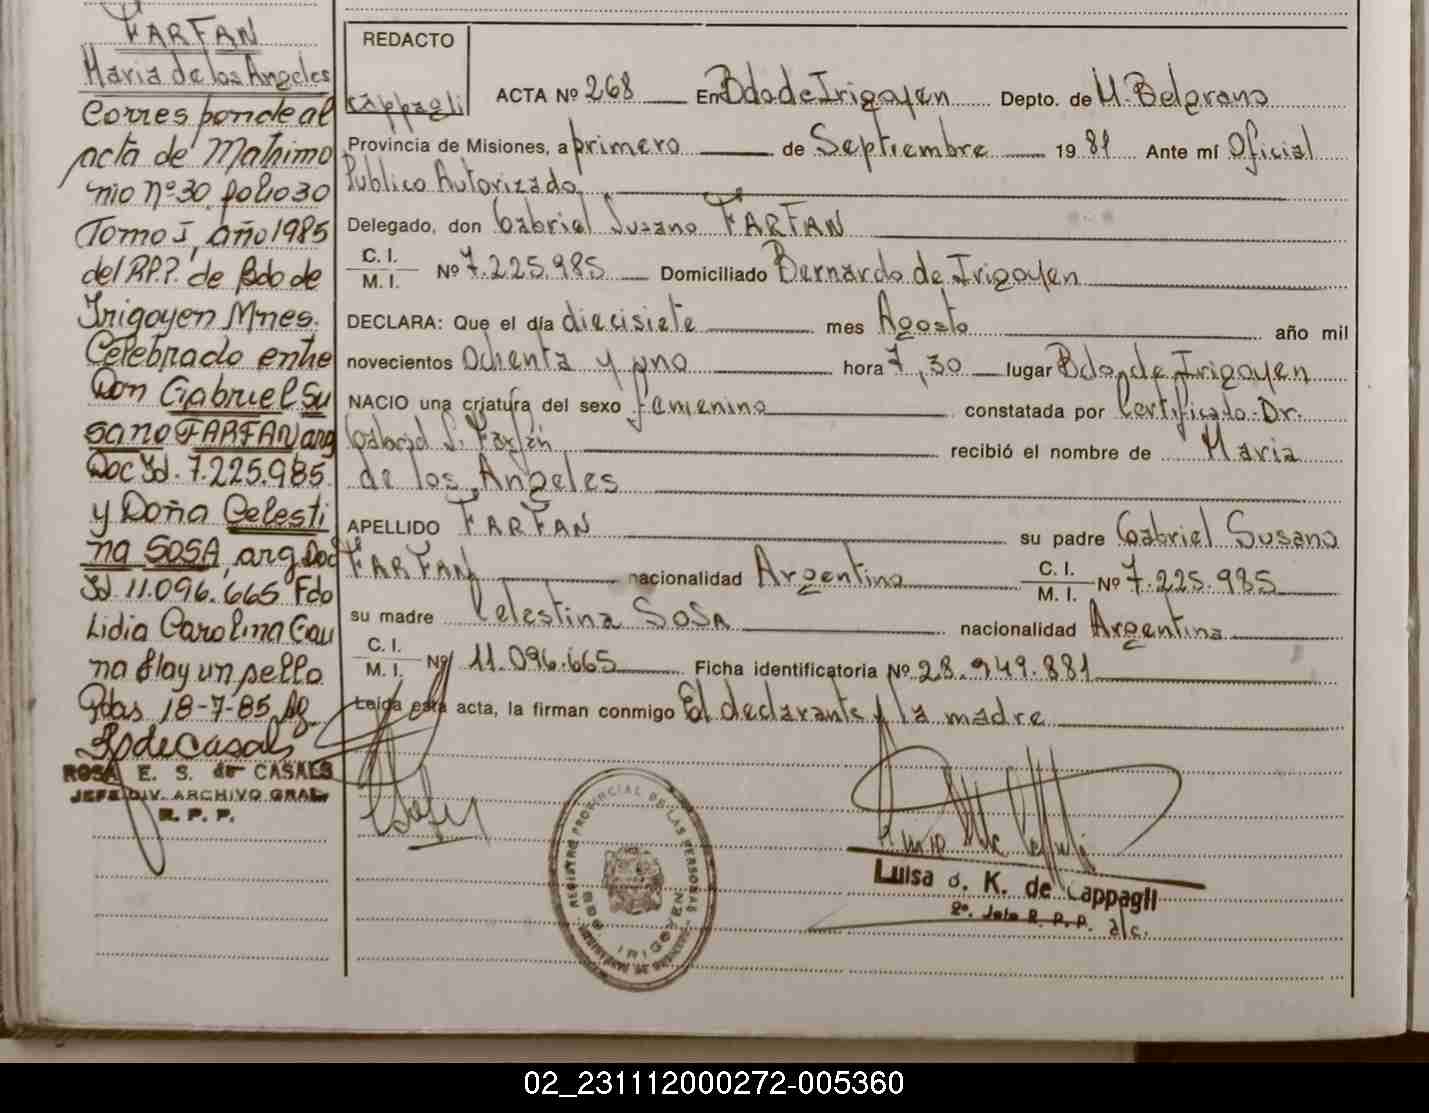 FARFAN
Maria de los Angeles
Corresponde al
acta de Matrimo
nio nº 30 folio 30
Tomo I, año 1985
del R.P.P. de Bdo de
Irigoyen Mnes.
Celebrado entre
Don Gabriel Su
sano FARFAN arg
Doc Id. 7.225.985
y Doña Celesti
na SOSA, arg Doc
Id 11.096.665 Fdo
Lidia Carolina Gau
na Hay un sello
Pdas 18-7-85
R S de Casals
ROSA E. S. de CASALS
JEFE DIV. ARCHIVO GRAL.
R. P. P.
REDACTO
Cappagli
ACTA Nº 268 En Bdo de Irigoyen Depto. de M. Belgrano
Provincia de Misiones, a primero de Septiembre 19 81 Ante mí Oficial
Publico Autorizado
Delegado, don Gabriel Susano FARFAN
C. I.
M. I. Nº 7.225.985 Domiciliado Bernardo de Irigoyen
DECLARA: Que el día diecisiete mes Agosto año mil
novecientos Ochenta y uno hora 7,30 lugar Bdo. de Irigoyen
NACIO una criatura del sexo femenino constatada por Certificado Dr.
Gabriel S. Farfán recibió el nombre de Maria
de los Angeles
APELLIDO FARFAN su padre Gabriel Susano
FARFAN nacionalidad Argentino C. I.
M. I. Nº 7.225.985
su madre Celestina SOSA nacionalidad Argentina
C. I.
M. I. Nº 11.096.665 Ficha identificatoria Nº 28.949.881
Leída esta acta, la firman conmigo El declarante y la madre
REGISTRO PROVINCIAL DE LAS PERSONAS
BDO. IRIGOYEN
Luisa K. de Cappagli
2º. Jefe R. P. P. a/c.
02_231112000272-005360